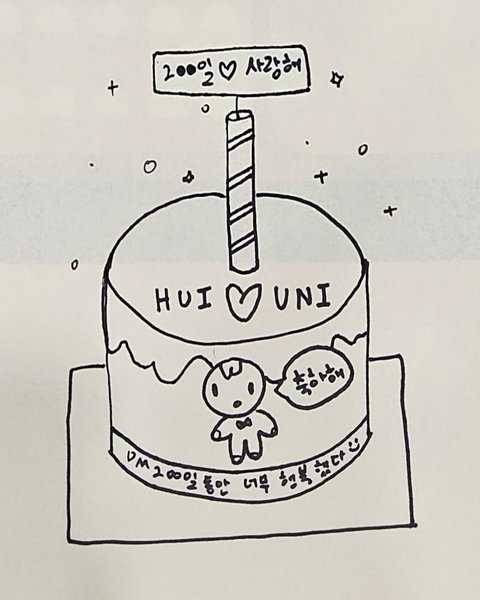 200일♡ 사랑해
HUI♡UNI
축하해
UM 200일동안 너무 행복했다☺